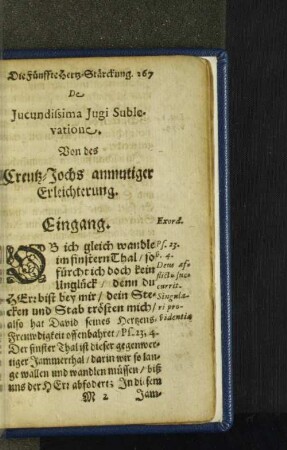 Die Fünffte Hertz-Stärckung. 267
De
Jucundissima Jugi Suble-
vatione.
Von des
Creutz-Jochs anmutiger
Erleichterung.
Eingang.
Exord.
OB ich gleich wandle
im finstern Thal / so
fürcht ich doch kein
Unglück / denn du
HErr bist bey mir / dein Ste-
cken und Stab trösten mich /
also hat David seines Hertzens
Freudigkeit offenbahret / Ps. 23. 4.
Der finster Thal ist dieser gegenwer-
tiger Jammerthal / darin wir so lan-
ge wallen und wandlen müssen / biß
uns der HErr abfodert. In diesem
M 2 Jam-
Ps. 23.
v. 4.
Deus af-
flictis suc-
currit.
Singula-
ri pro-
videntia